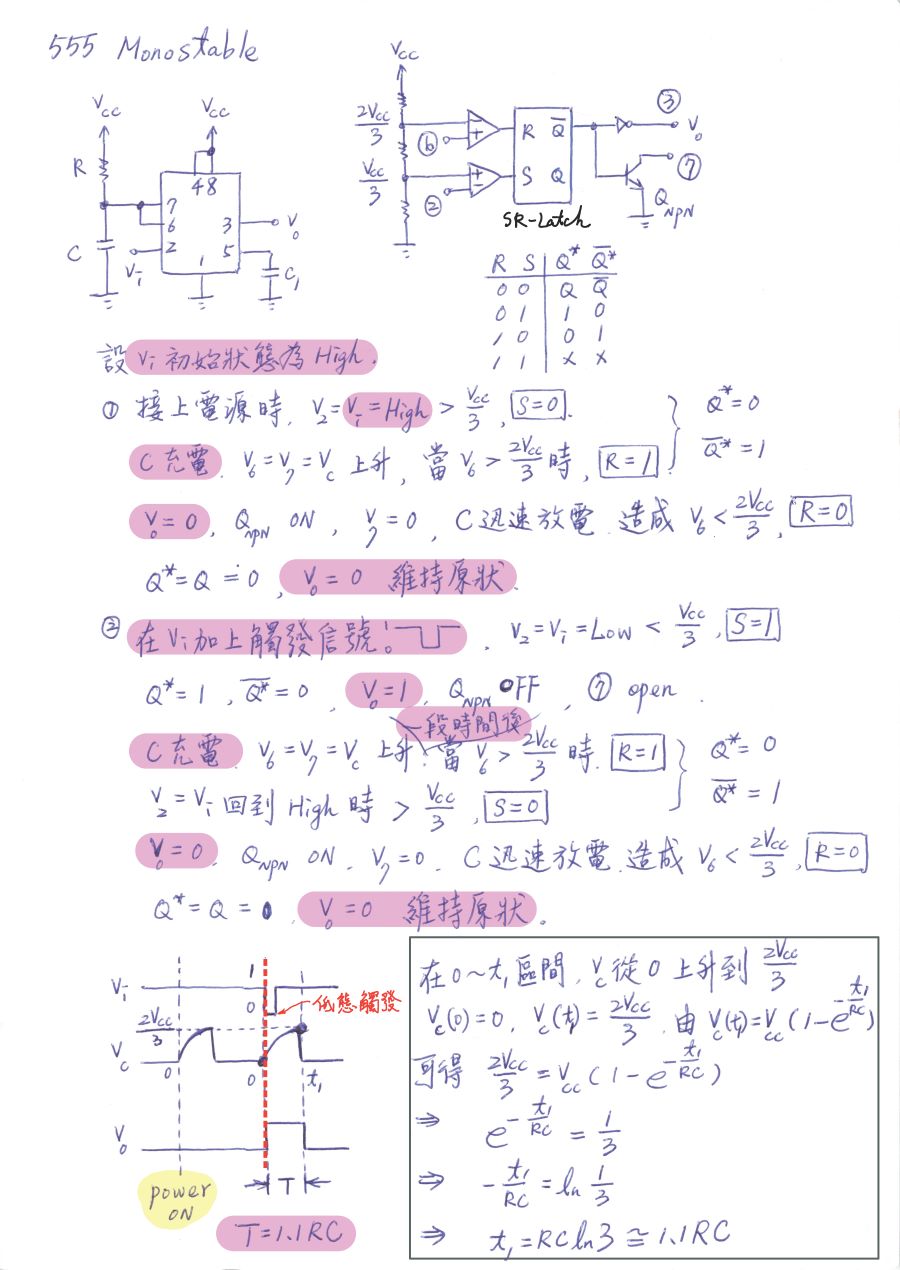 555 Monostable
Vcc
Vcc
R
C
4 8
7
6
2
3
5
1
Vi
Vo
C1
Vcc
2Vcc/3
Vcc/3
⑥
②
- +
+ -
R Q̅
S Q
SR-Latch
③
Vo
⑦
QNPN
R S Q* Q̅*
0 0 Q Q̅
0 1 1 0
1 0 0 1
1 1 × ×
設 Vi 初始狀態為 High.
① 接上電源時, V2=Vi=High > Vcc/3, S=0. } Q*=0
C 充電. V6=V7=Vc 上升, 當 V6 > 2Vcc/3 時, R=1 } Q̅*=1
Vo=0, QNPN ON, V7=0, C 迅速放電. 造成 V6 < 2Vcc/3, R=0
Q*=Q=0, Vo=0 維持原狀.
② 在 Vi 加上觸發信號! . V2=Vi=Low < Vcc/3, S=1
Q*=1, Q̅*=0, Vo=1, QNPN OFF, ⑦ open.
一段時間後
C 充電. V6=V7=Vc 上升. 當 V6 > 2Vcc/3 時. R=1 } Q*=0
V2=Vi 回到 High 時 > Vcc/3, S=0 } Q̅*=1
Vo=0, QNPN ON, V7=0. C 迅速放電. 造成 V6 < 2Vcc/3, R=0
Q*=Q=0, Vo=0 維持原狀.
Vi
1
0
低態觸發
2Vcc/3
Vc
0
0
t1
Vo
power
ON
T
T=1.1RC
在 0~t1 區間, Vc 從 0 上升到 2Vcc/3
Vc(0)=0, Vc(t1)=2Vcc/3. 由 Vc(t1)=Vcc(1-e^(-t1/RC))
可得 2Vcc/3=Vcc(1-e^(-t1/RC))
⇒ e^(-t1/RC)=1/3
⇒ -t1/RC=ln 1/3
⇒ t1=RC ln3≅1.1RC